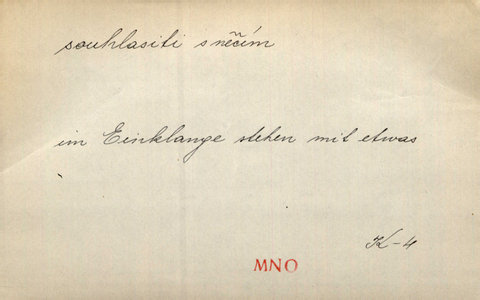 souhlasiti s něčím
im Einklange stehen mit etwas
K-4
MNO